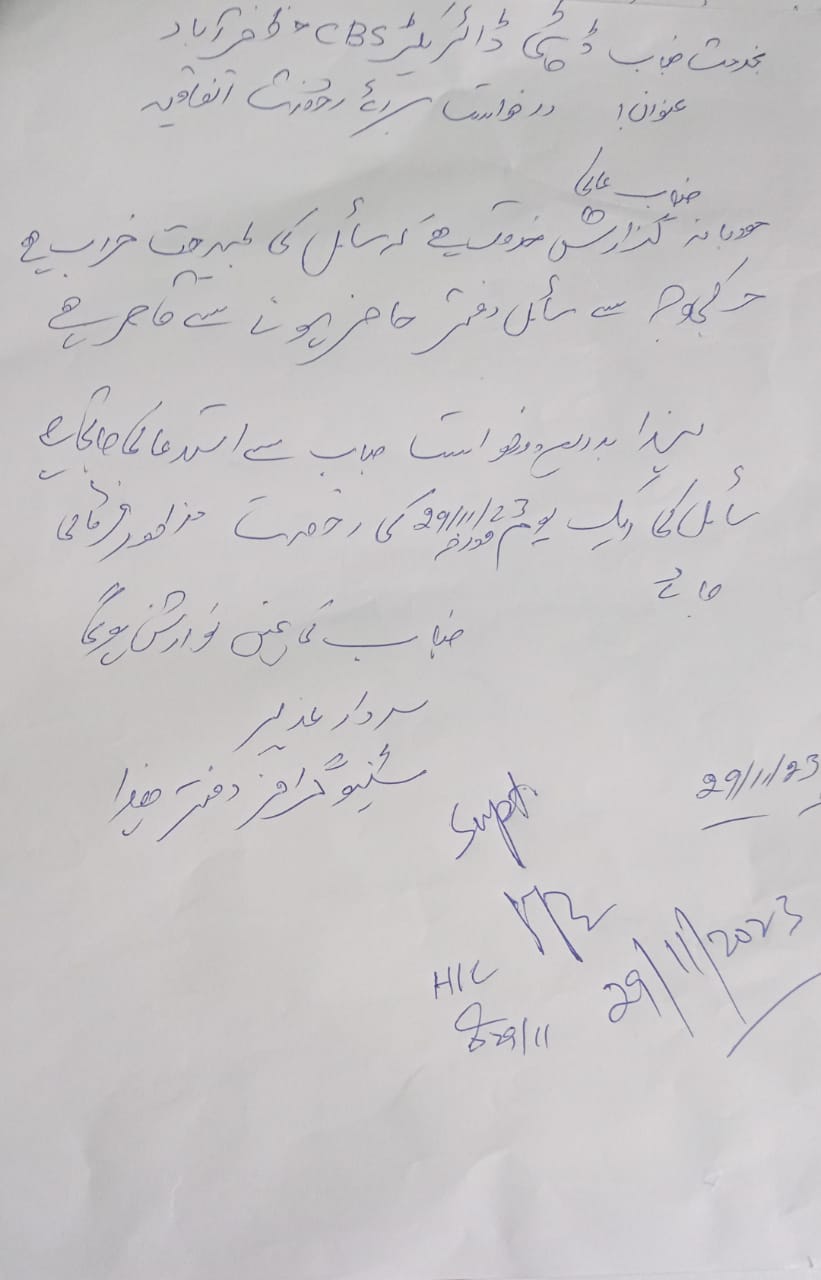 بخدمت جناب ڈپٹی ڈائریکٹر CBS مظفرآباد
عنوان! درخواست برائے رخصت اتفاقیہ
جناب عالی
مودبانہ گزارش خدمت ہے کہ سائل کی طبیعت خراب ہے
جسکی وجہ سے سائل دفتر حاضر ہونے سے قاصر ہے
لہذا بذریعہ درخواست جناب سے استدعا کی جاتی ہے
سائل کی ایک یوم مورخہ 29/11/23 کی رخصت منظور فرمائی
جائے
جناب کی عین نوازش ہوگی
سردار
سٹینوگرافر دفتر ھذا
29/11/23
Supt.
29/11/2023
H/C
29/11